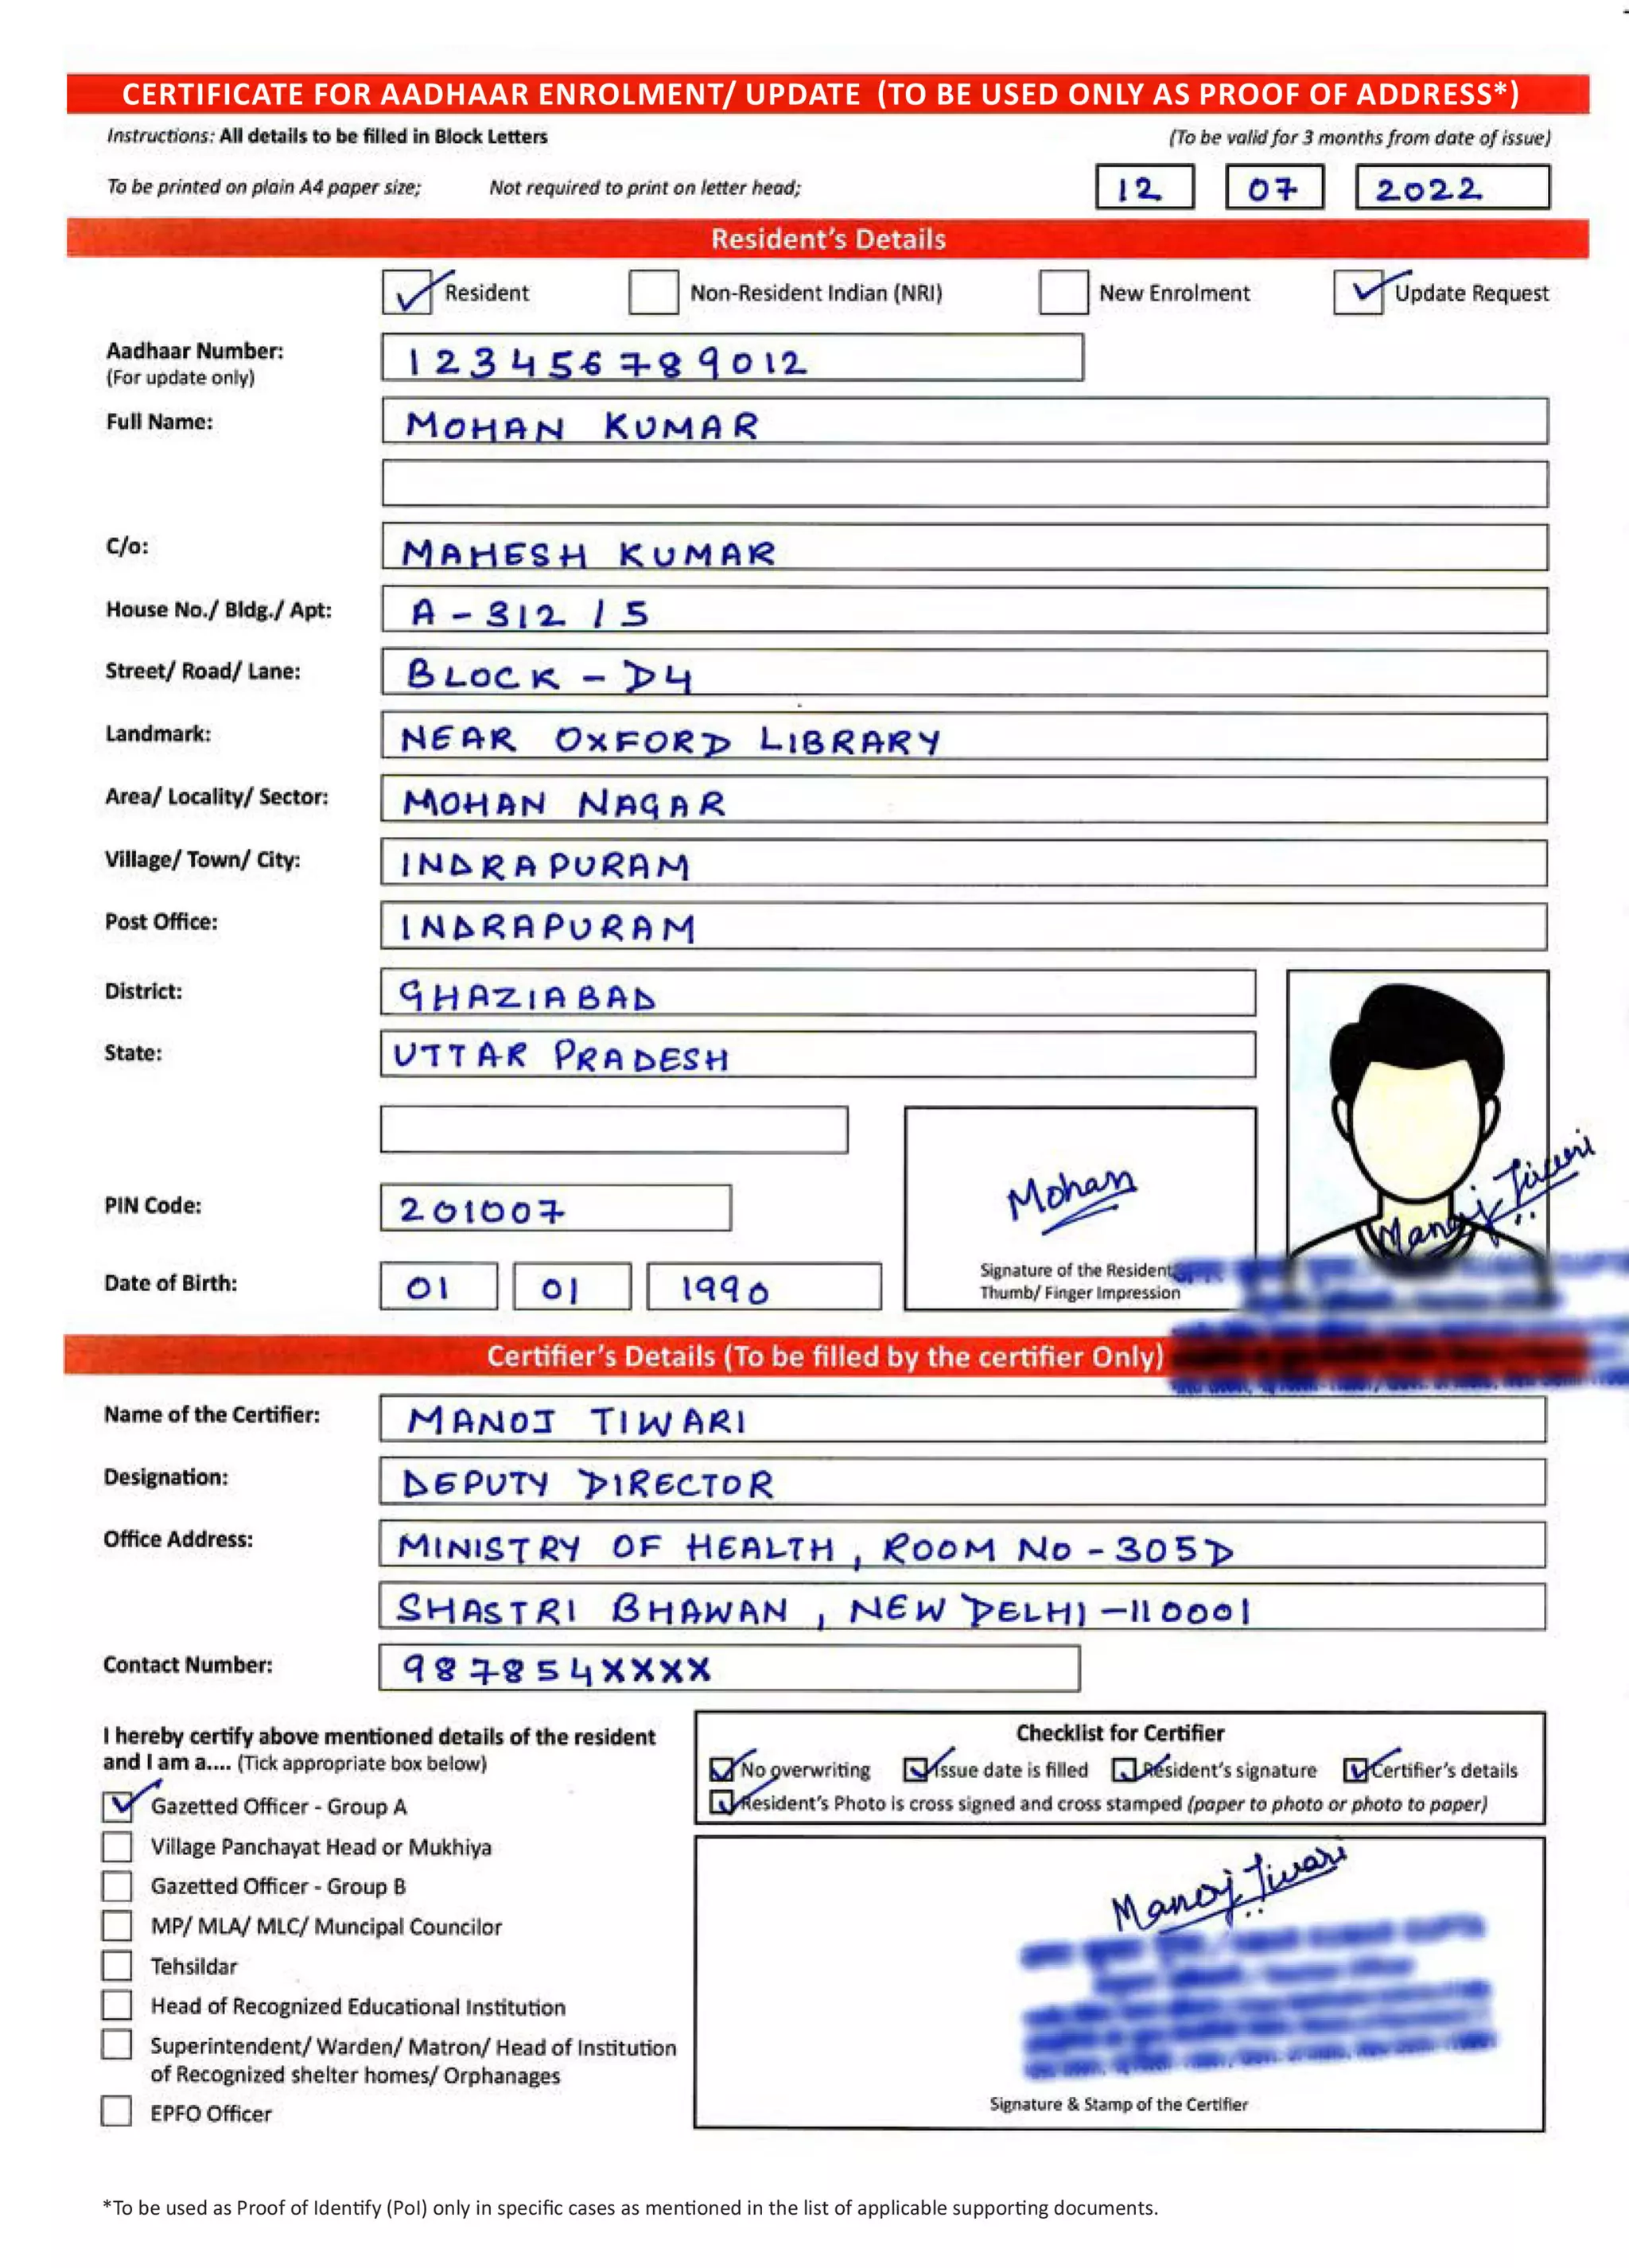 CERTIFICATE FOR AADHAAR ENROLMENT/ UPDATE (TO BE USED ONLY AS PROOF OF ADDRESS*)
Instructions: All details to be filled in Block Letters (To be valid for 3 months from date of issue)
To be printed on plain A4 paper size; Not required to print on letter head; 12 07 2022
Resident's Details
Resident Non-Resident Indian (NRI) New Enrolment Update Request
Aadhaar Number: 123456789012
(For update only)
Full Name: MOHAN KUMAR
C/o: MAHESH KUMAR
House No./ Bldg./ Apt: A - 312 / 5
Street/ Road/ Lane: BLOCK - D4
Landmark: NEAR OXFORD LIBRARY
Area/ Locality/ Sector: MOHAN NAGAR
Village/ Town/ City: INDRAPURAM
Post Office: INDRAPURAM
District: GHAZIABAD
State: UTTAR PRADESH
Mohan
Manoj Tiwari
PIN Code: 201007
Signature of the Resident
Thumb/ Finger Impression
Date of Birth: 01 01 1990
Certifier's Details (To be filled by the certifier Only)
Name of the Certifier: MANOJ TIWARI
Designation: DEPUTY DIRECTOR
Office Address: MINISTRY OF HEALTH, ROOM NO - 305D
SHASTRI BHAWAN, NEW DELHI -110001
Contact Number: 987854XXXX
I hereby certify above mentioned details of the resident
and I am a.... (Tick appropriate box below)
Gazetted Officer - Group A
Village Panchayat Head or Mukhiya
Gazetted Officer - Group B
MP/ MLA/ MLC/ Muncipal Councilor
Tehsildar
Head of Recognized Educational Institution
Superintendent/ Warden/ Matron/ Head of Institution
of Recognized shelter homes/ Orphanages
EPFO Officer
Checklist for Certifier
No overwriting Issue date is filled Resident's signature Certifier's details
Resident's Photo is cross signed and cross stamped (paper to photo or photo to paper)
Manoj Tiwari
Signature & Stamp of the Certifier
*To be used as Proof of Identify (PoI) only in specific cases as mentioned in the list of applicable supporting documents.